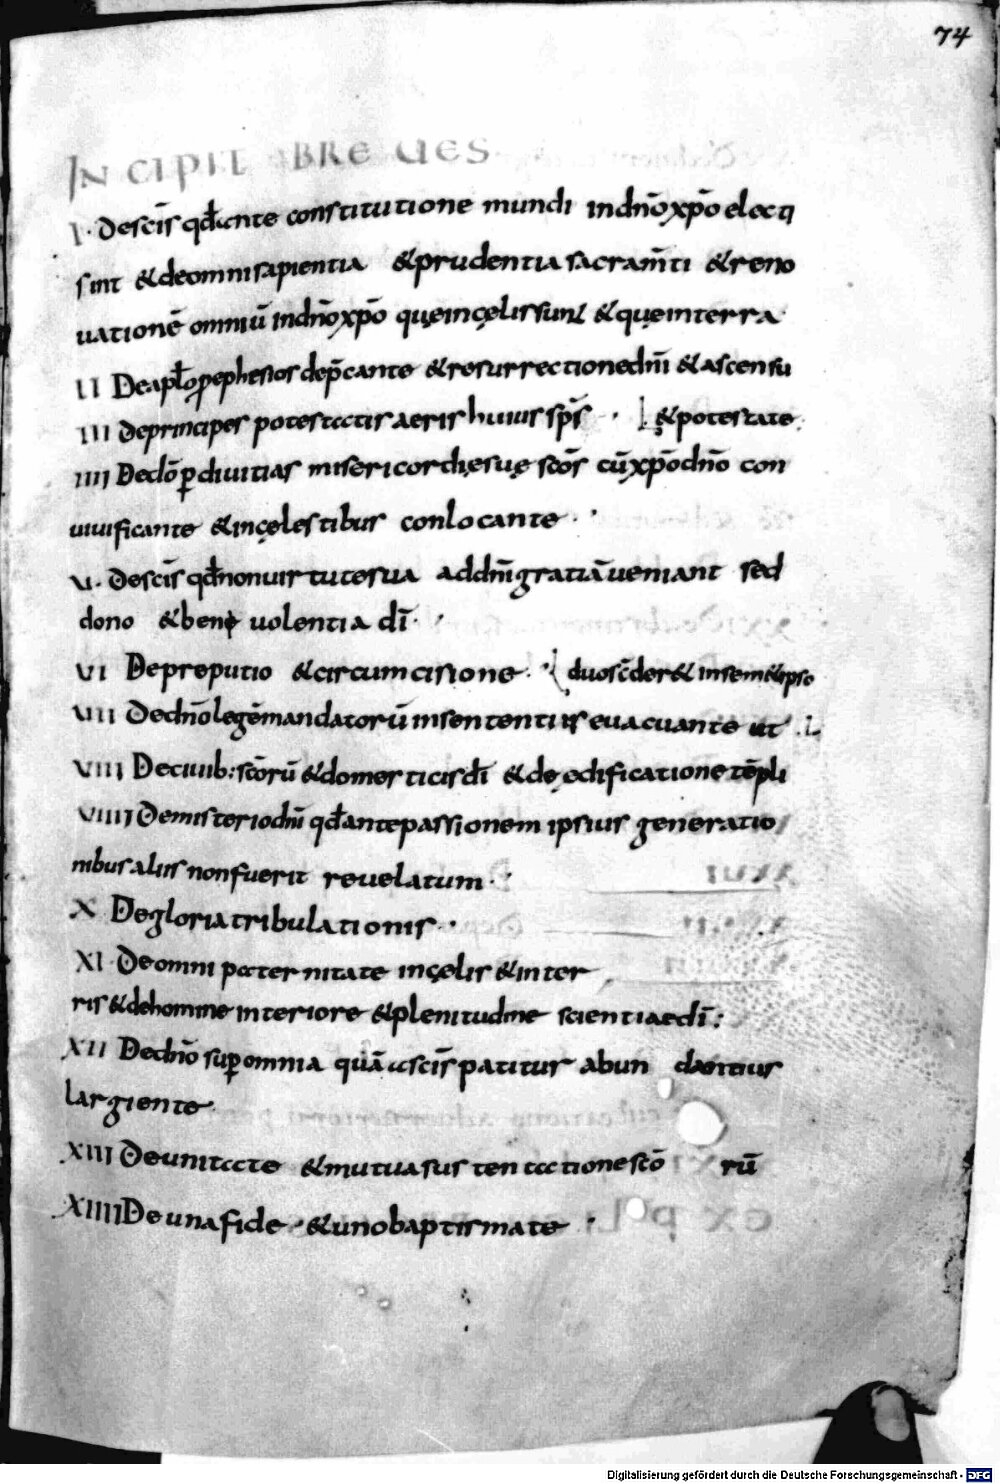 74
INCIPIT BREUES
I. De scīs qđ ante constitutione mundi in dn̄o xp̄o electi
sint & de omni sapientia & prudentia sacram̄ti & reno
uationē omniū in dn̄o xp̄o que in cęlis sunt & que in terra
II De aplo p ephesios dep̄cante & resurrectione dn̄i & ascensu
III De principes potestatis aeris huius sp̄s · & potestate
IIII De dō p diuitias misericordię suę scōs cū xp̄o dn̄o con
uiuificante & in cęlestibus conlocante
V. De scīs qđ non uirtute sua ad dn̄i gratiā ueniant sed
dono & bene uolentia dī
VI De preputio & circumcisione duos c̄der& in sem&ipso
VII De dn̄o legē mandatorū in sententiis euacuante ut
VIII De ciuib: scōrū & domesticis dī & de ędificatione tēpli
VIIII De misterio dn̄i qđ ante passionem ipsius generatio
nibus aliis non fuerit reuelatum
X De gloria tribulationis
XI De omni paternitate in cęlis & in ter
ris & de homine interiore & plenitudine scientiae dī:
XII De dn̄o sup omnia quā a scīs patitur abun dantius
largiente
XIII De unitate & mutua sustentatione scō rū
XIIII De una fide & uno baptismate
Digitalisierung gefördert durch die Deutsche Forschungsgemeinschaft - DFG